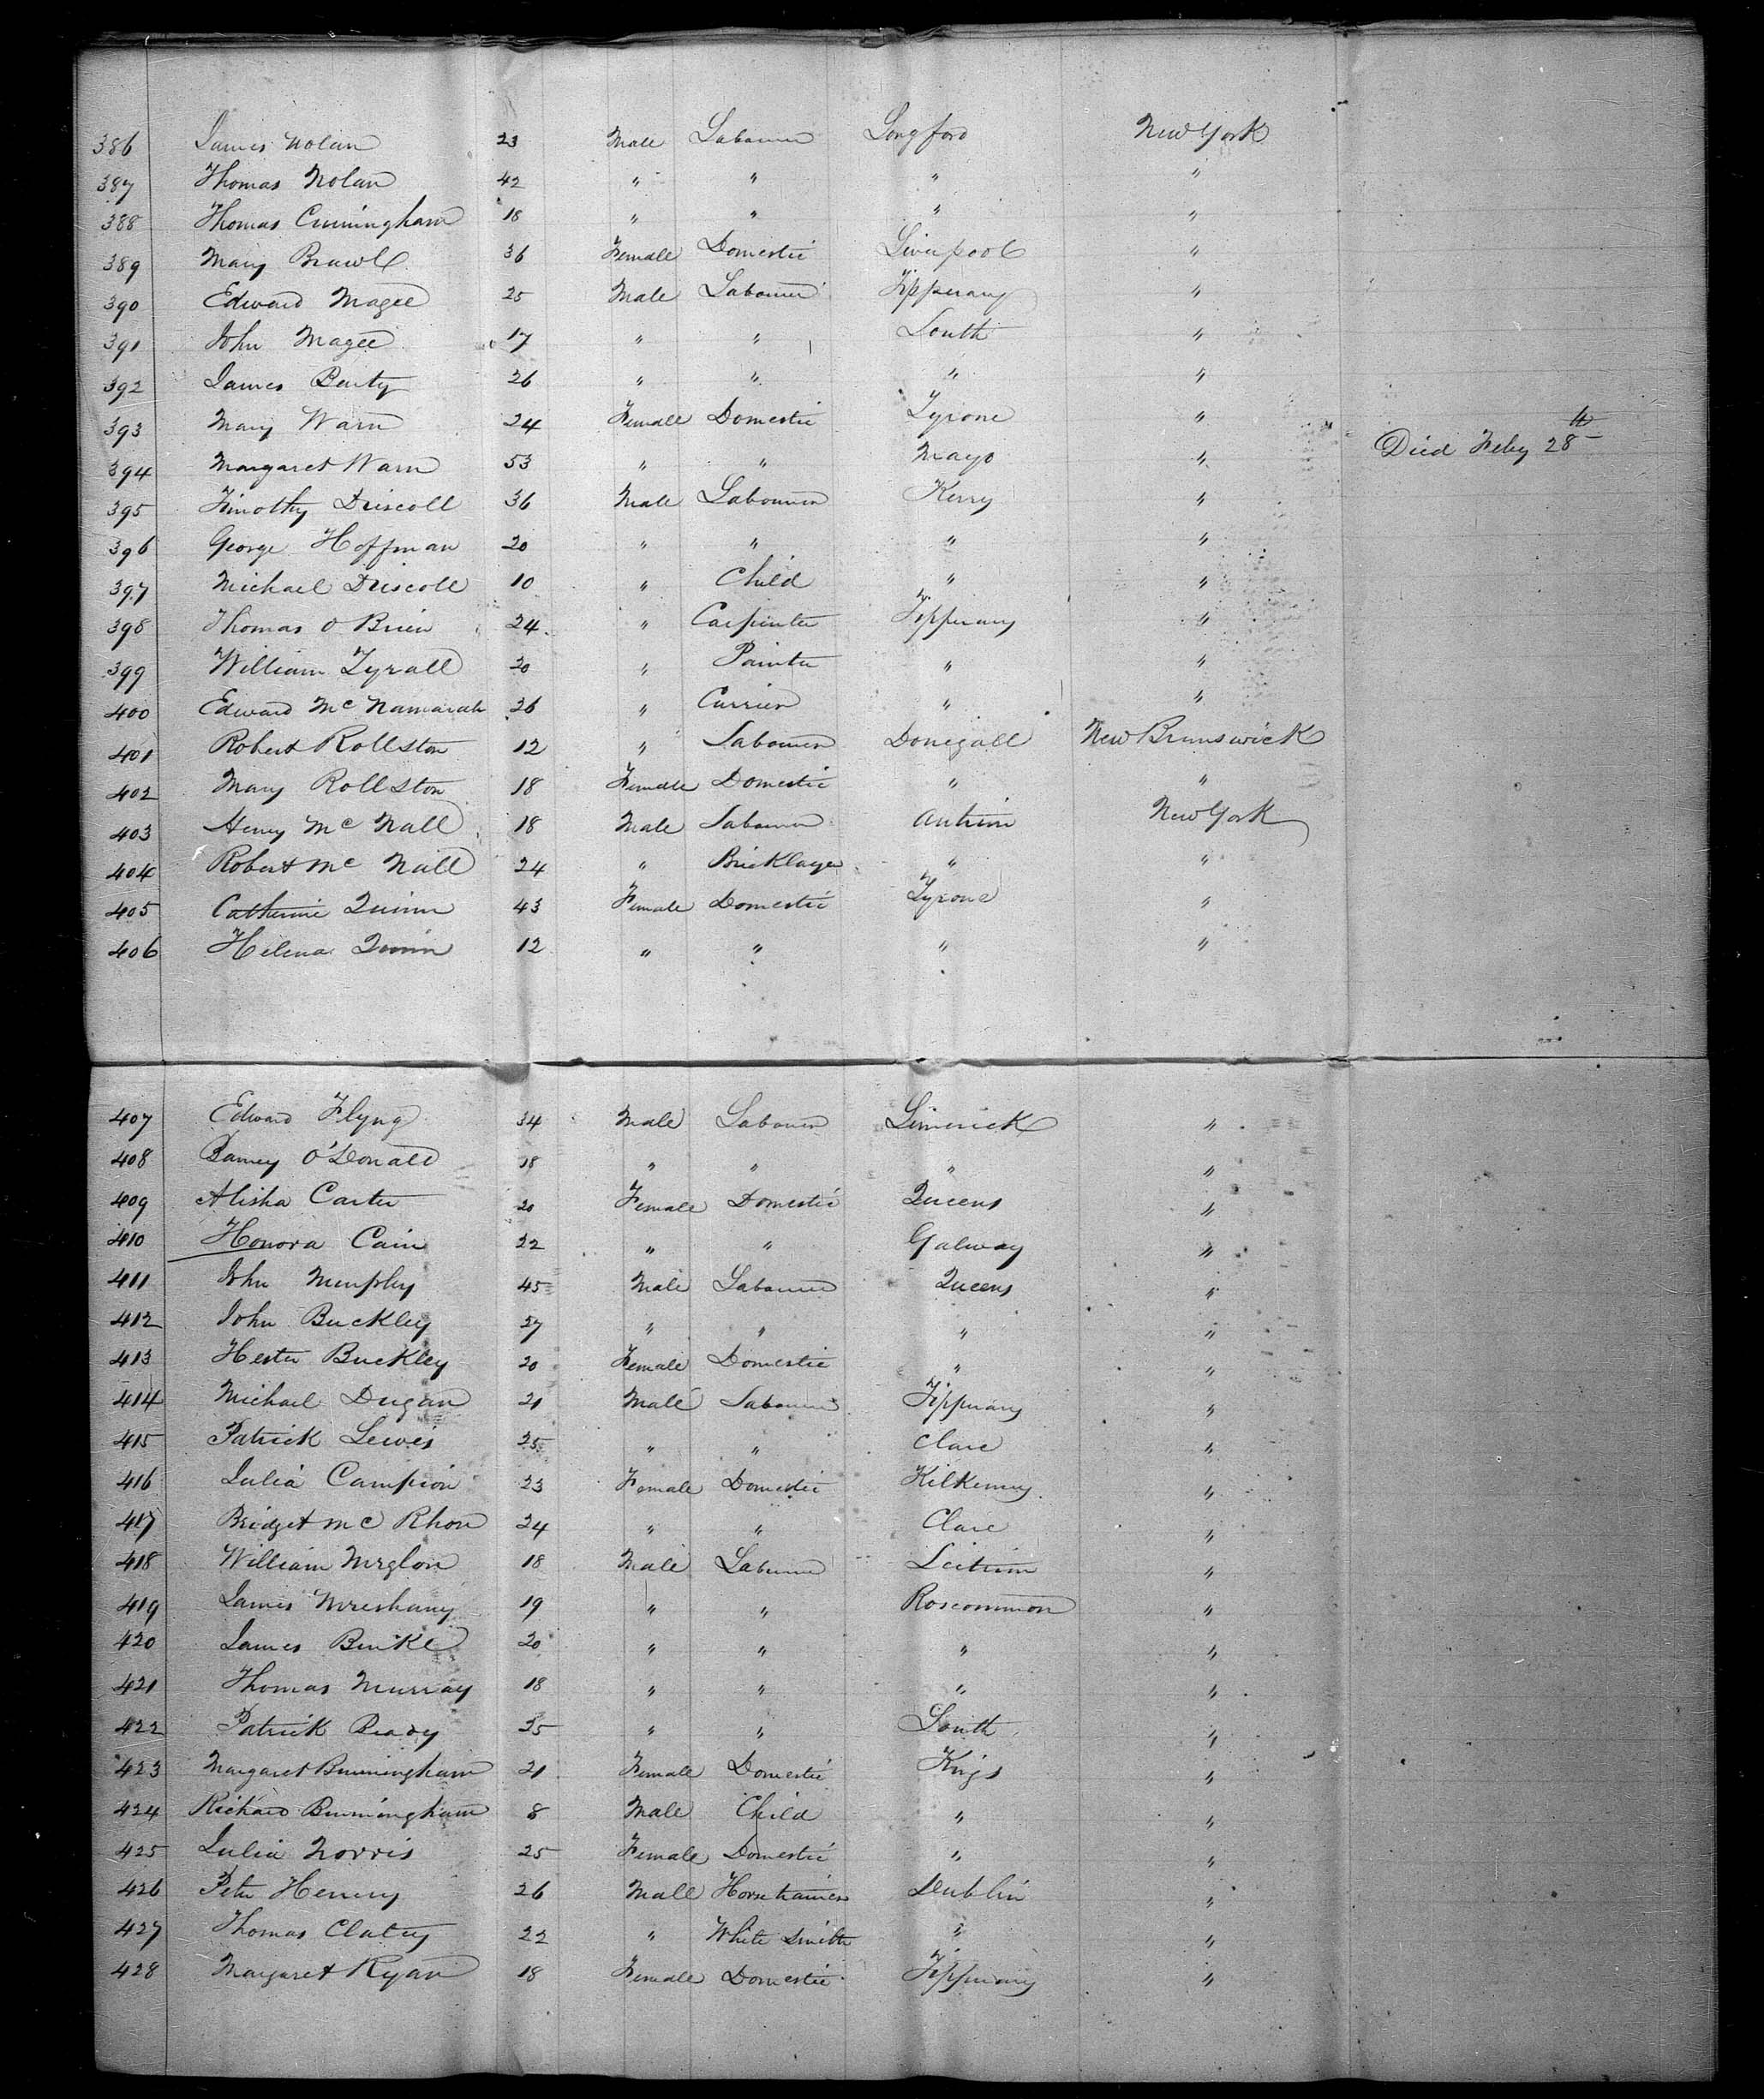 386 James Nolan 23 Male Labourer Longford New York
387 Thomas Nolan 42 " " " "
388 Thomas Cunningham 18 " " " "
389 Mary Brawl 36 Female Domestic Liverpool "
390 Edward Magee 25 Male Labourer Tipperary "
391 John Magee 17 " " Louth "
392 James Benty 26 " " " "
393 Mary Warn 24 Female Domestic Tyrone "
394 Margaret Warn 53 " " Mayo " Died Feby 28th
395 Timothy Driscoll 36 Male Labourer Kerry "
396 George Hoffman 20 " " " "
397 Michael Driscoll 10 " Child " "
398 Thomas O Brien 24 " Carpenter Tipperary "
399 William Tyrall 20 " Painter " "
400 Edward Mc Namarah 26 " Currier " "
401 Robert Rollston 12 " Labourer Donegall New Brunswick
402 Mary Rollston 18 Female Domestic " "
403 Henry Mc Nall 18 Male Labourer Antrim New York
404 Robert Mc Nall 24 " Bricklayer " "
405 Catherine Quinn 43 Female Domestic Tyrone "
406 Helena Quinn 12 " " " "
407 Edward Flyng 34 Male Labourer Limerick "
408 Barney O'Donald 18 " " " "
409 Alisha Carter 20 Female Domestic Queens "
410 Honora Cain 22 " " Galway "
411 John Murphy 45 Male Labourer Queens "
412 John Buckley 27 " " " "
413 Hester Buckley 20 Female Domestic " "
414 Michael Dugan 21 Male Labourer Tipperary "
415 Patrick Lewis 25 " " Clare "
416 Julia Campion 23 Female Domestic Kilkenny "
417 Bridget Mc Rhon 24 " " Clare "
418 William 18 Male Labourer Leitrim "
419 James 19 " " Roscommon "
420 James Burke 20 " " " "
421 Thomas Murray 18 " " " "
422 Patrick Beady 25 " " Louth "
423 Margaret Burmingham 21 Female Domestic Kings "
424 Richard Burmingham 8 Male Child " "
425 Julia Norris 25 Female Domestic " "
426 Peter Henery 26 Male Horse trainer Dublin "
427 Thomas Clatey 22 " White Smith " "
428 Margaret Ryan 18 Female Domestic Tipperary "